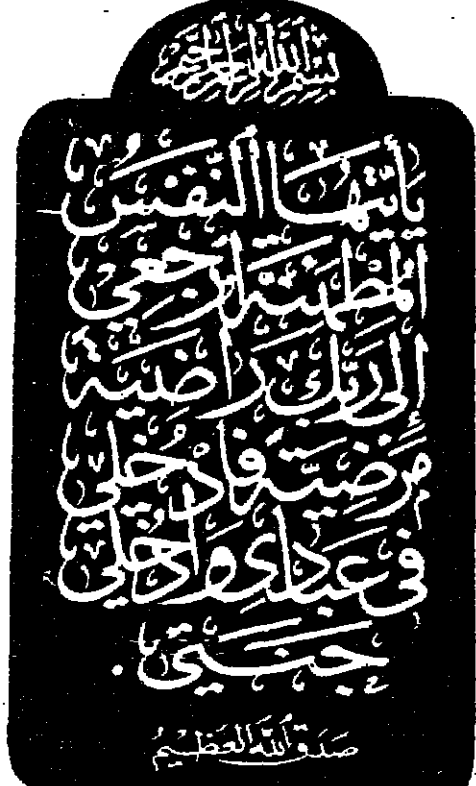 بسم الله الرحمن الرحيم
يَا أَيَّتُهَا النَّفْسُ
الْمُطْمَئِنَّةُ ارْجِعِي
إِلَى رَبِّكِ رَاضِيَةً
مَرْضِيَّةً فَادْخُلِي
فِي عِبَادِي وَادْخُلِي
جَنَّتِي.
صَدَقَ اللَّهُ الْعَظِيمُ